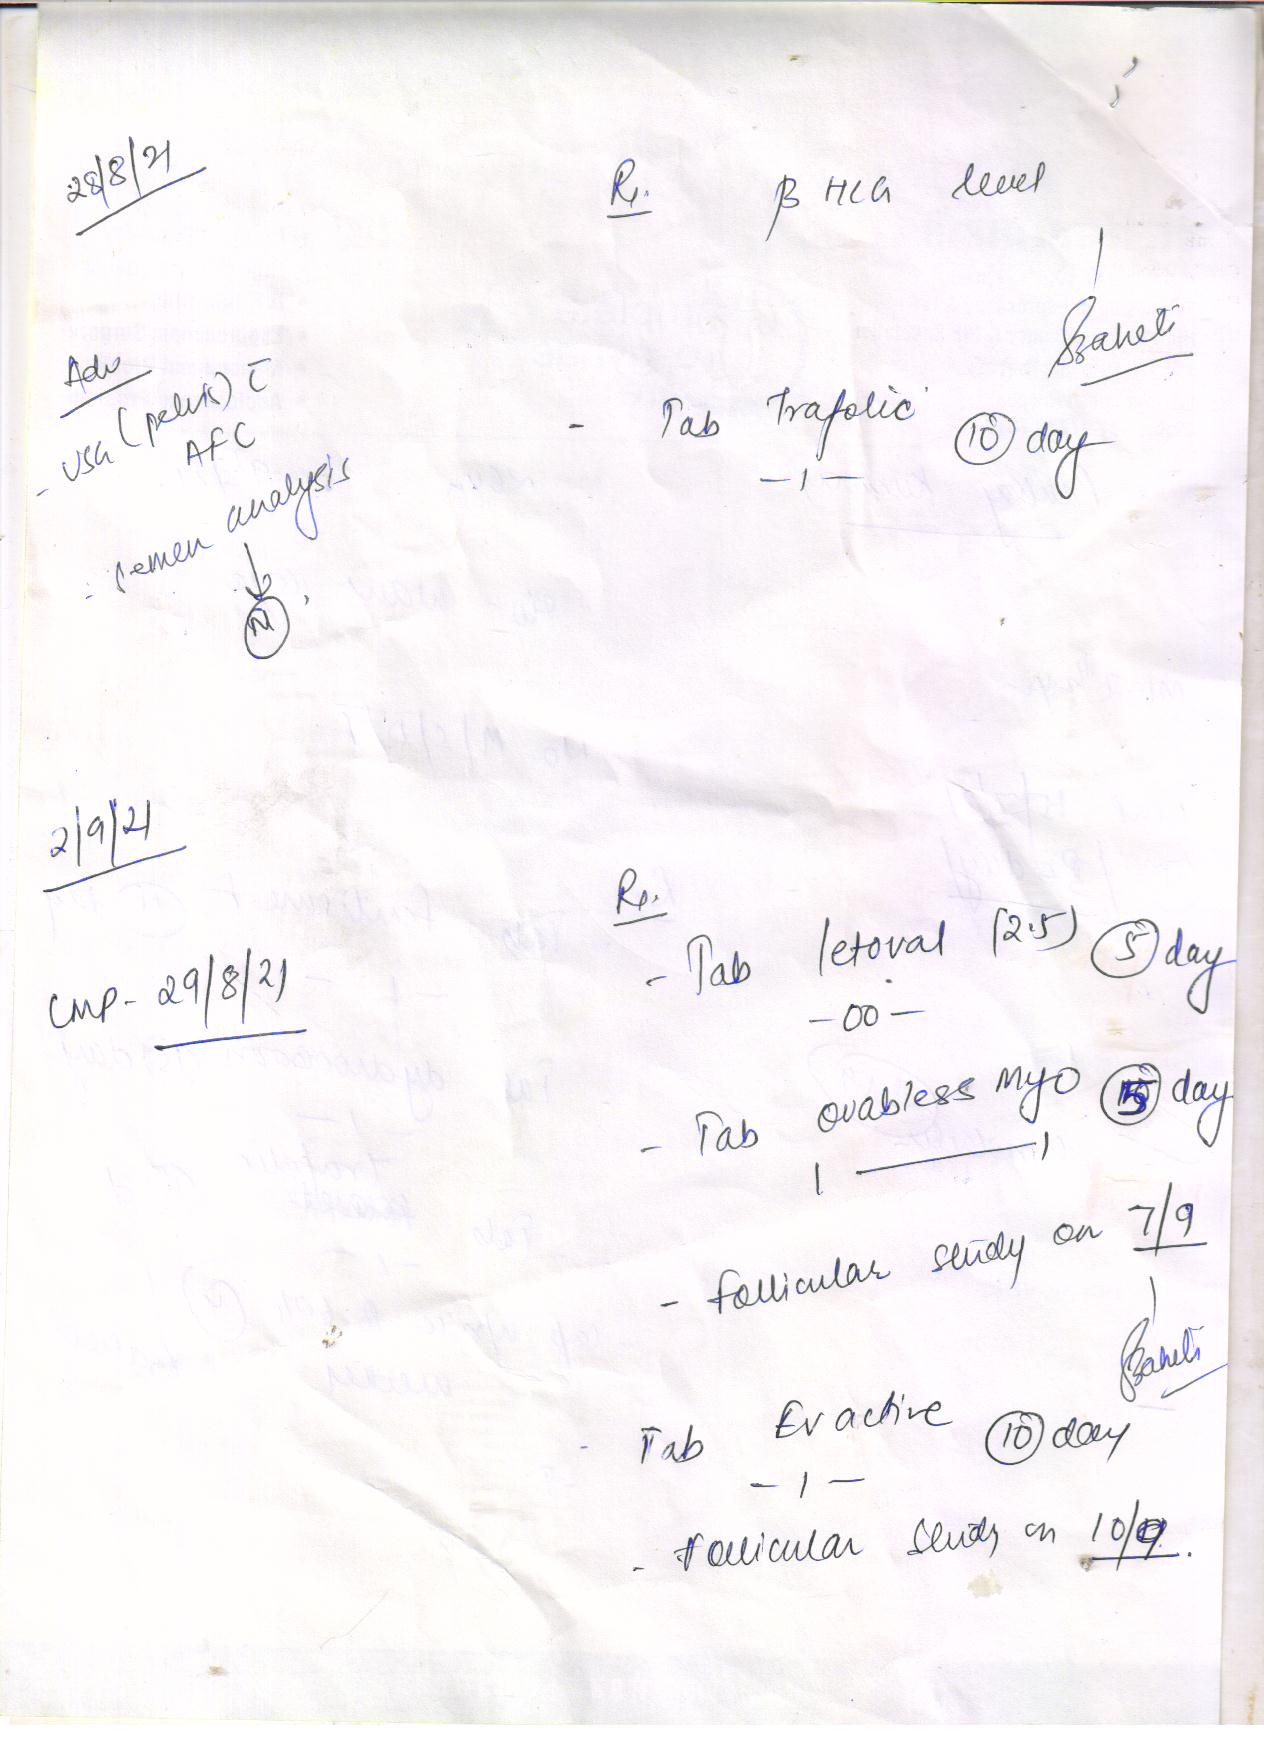 28/8/21
Rx. β HCG level
Adv
- USG (pelvis) c̄
AFC
- Tab Trafolic (10) day
- 1 -
- semen analysis
↓
(N)
2/9/21
Rx.
LMP - 29/8/21
- Tab letoval (2.5) (5) day
- 00 -
- Tab ovabless Myo day
1 — 1
- follicular study on 7/9
- Tab Evactive (10) day
- 1 -
- follicular study on 10/9.